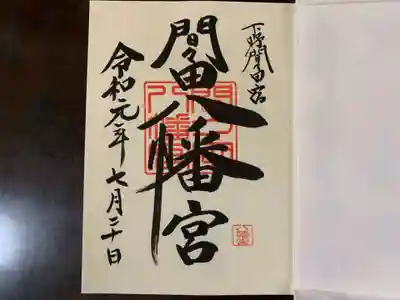 下野間々田宿
間々田八幡宮
令和元年七月二十日